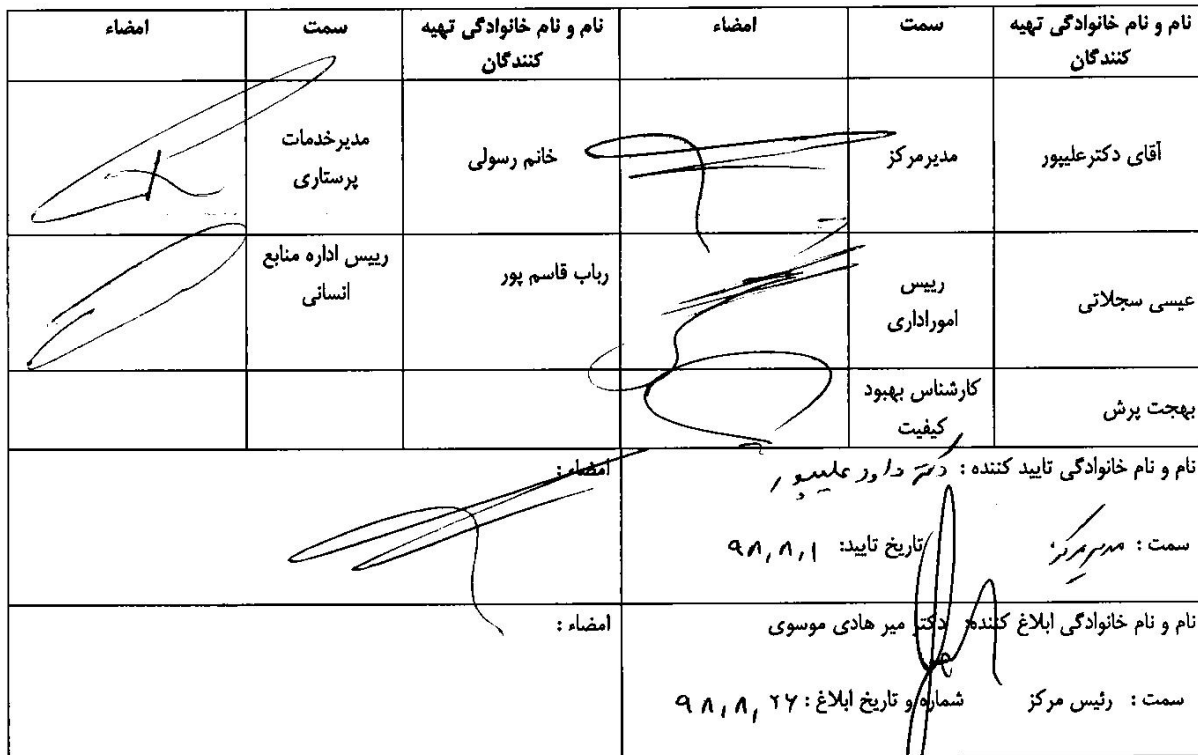 نام و نام خانوادگی تهیه کنندگان	سمت	امضاء	نام و نام خانوادگی تهیه کنندگان	سمت	امضاء
آقای دکترعلیپور	مدیرمرکز	خانم رسولی	مدیرخدمات پرستاری
عیسی سجلاتی	رییس اموراداری	رباب قاسم پور	رییس اداره منابع انسانی
بهجت پرش	کارشناس بهبود کیفیت
نام و نام خانوادگی تایید کننده : دکتر داور علیپور	امضاء :
سمت : مدیر مرکز	تاریخ تایید: ۹۸,۸,۱
نام و نام خانوادگی ابلاغ کننده: دکتر میر هادی موسوی	امضاء :
سمت : رئیس مرکز	شماره و تاریخ ابلاغ : ۹۸,۸,۲۶